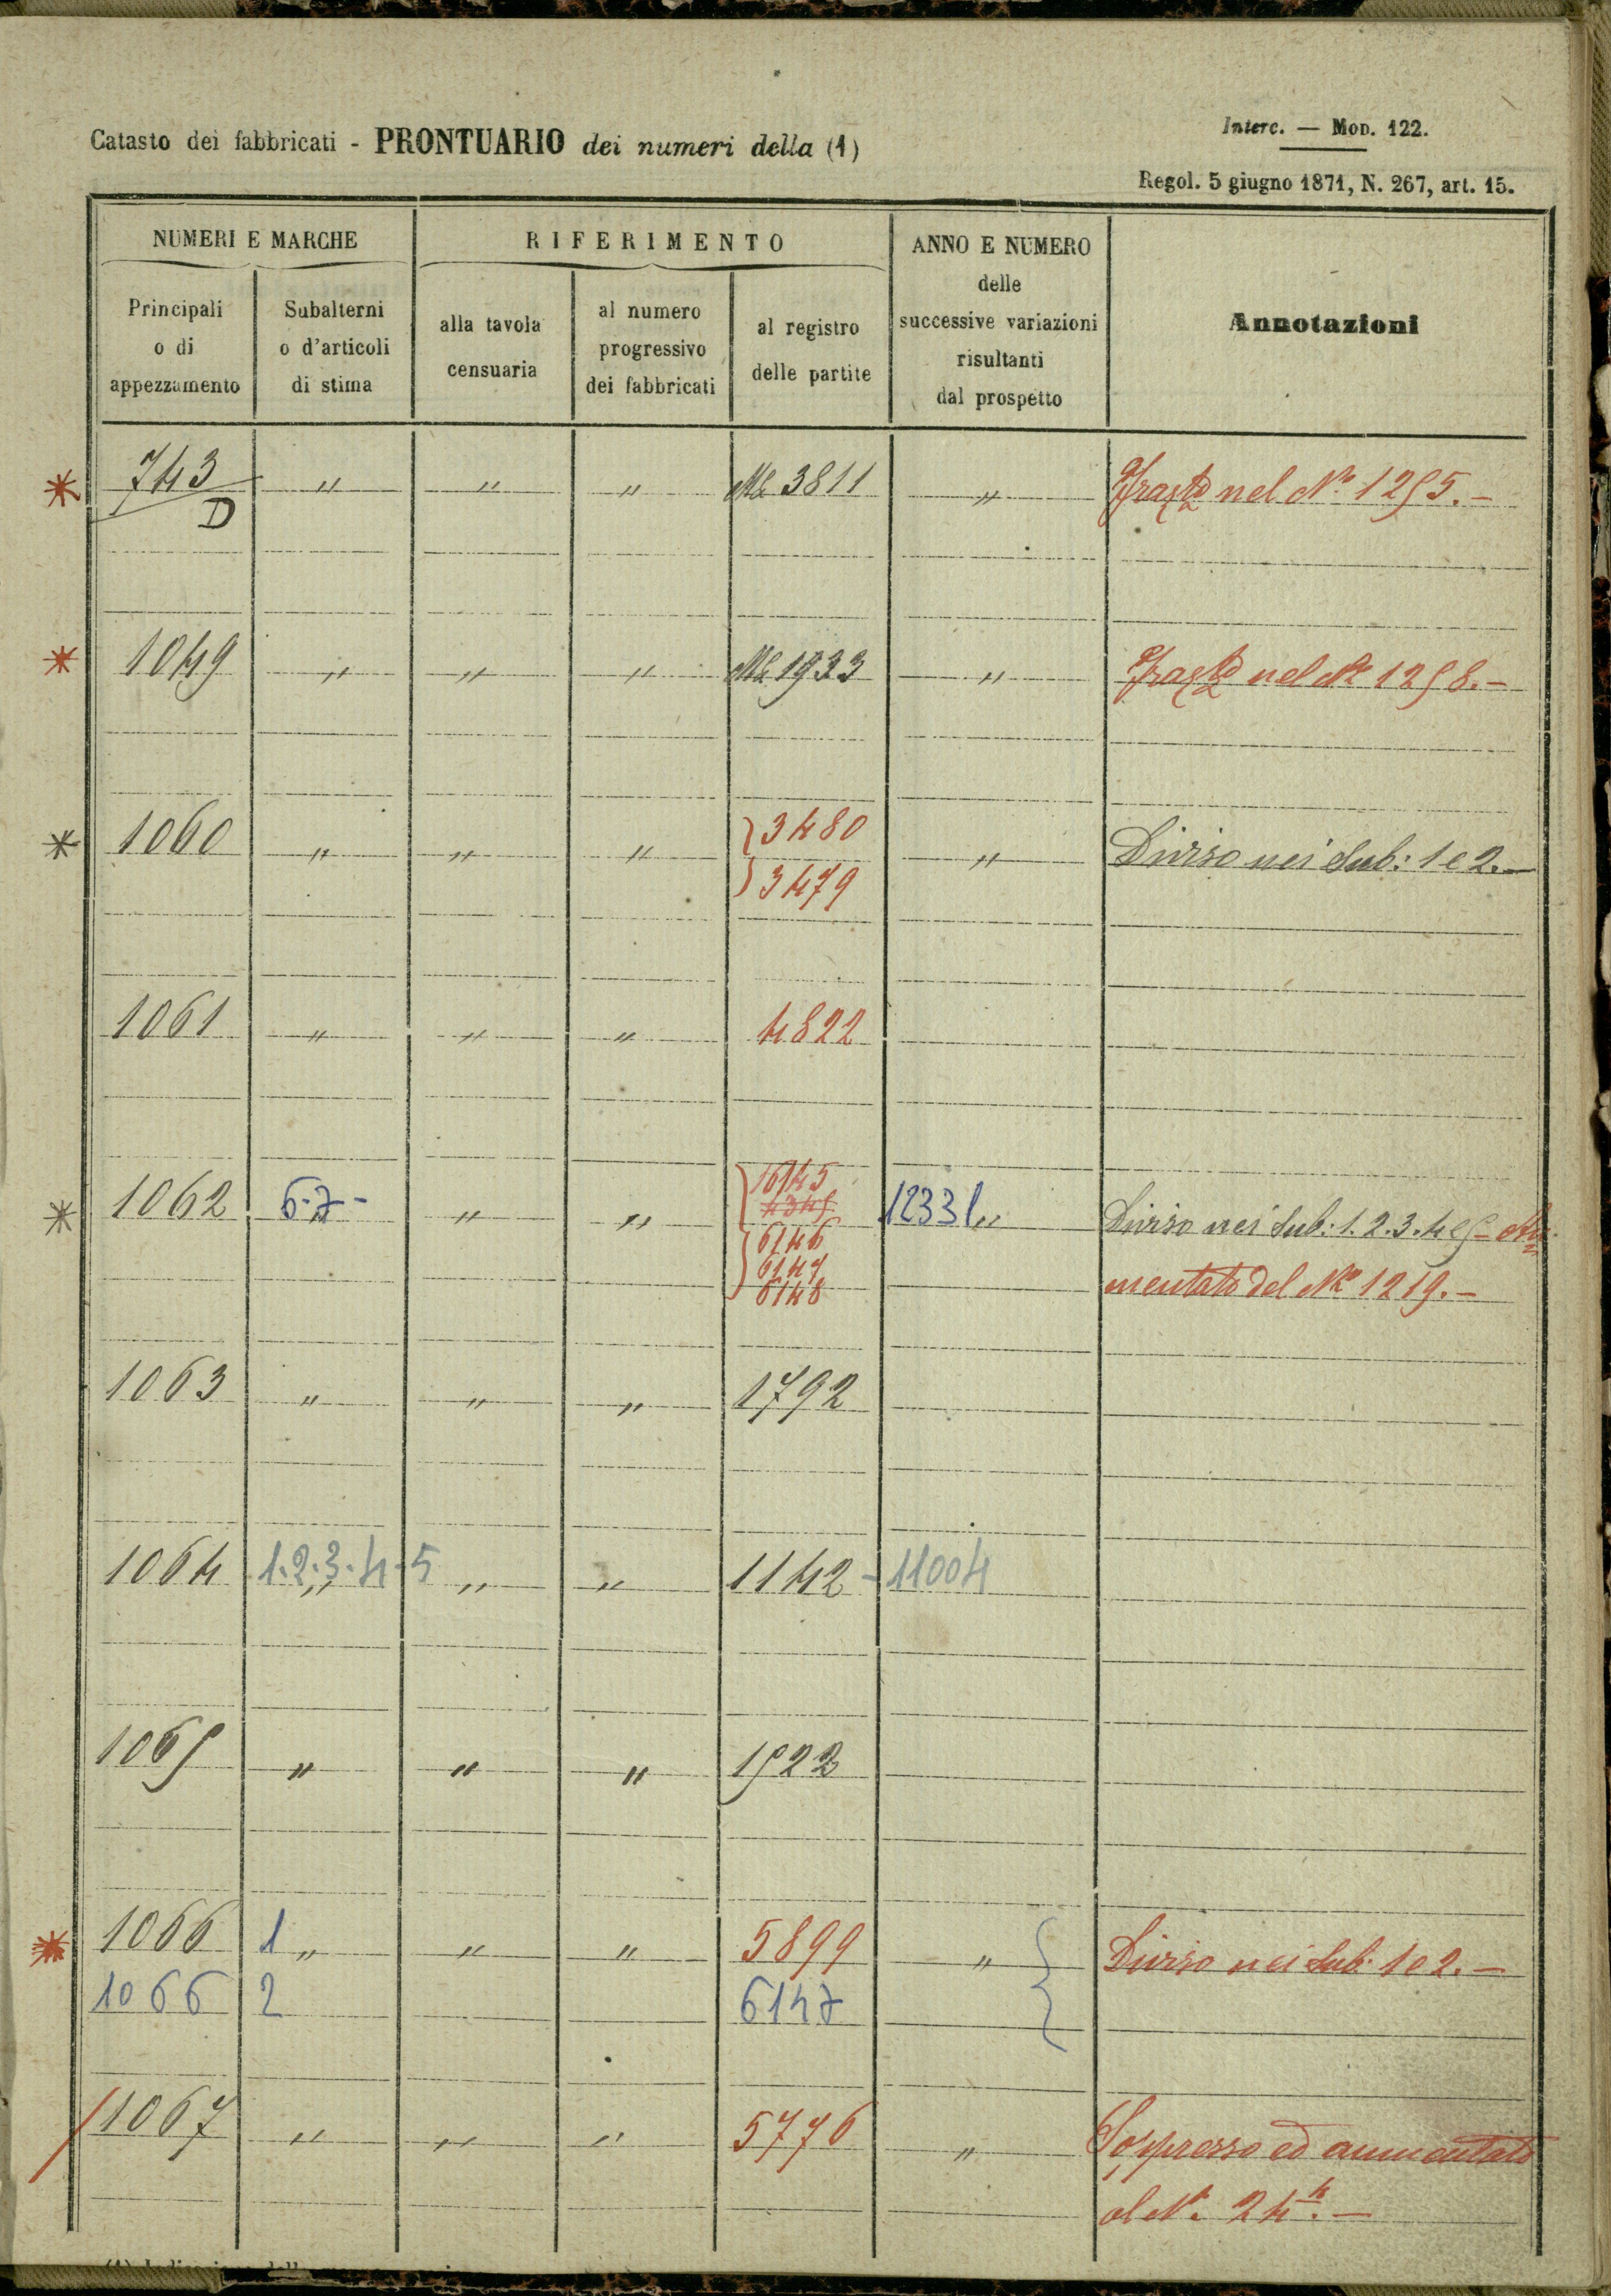 Interc. — Mod. 122.
Catasto dei fabbricati - PRONTUARIO dei numeri della (1)
Regol. 5 giugno 1871, N. 267, art. 15.
NUMERI E MARCHE RIFERIMENTO ANNO E NUMERO delle successive variazioni risultanti dal prospetto Annotazioni
Principali o di appezzamento Subalterni o d'articoli di stima alla tavola censuaria al numero progressivo dei fabbricati al registro delle partite
743/D " " " 3811 " nel No 1295.-
1049 " " " 1933 " nel No 1298.-
1060 " " " 3480 " Diviso nei Sub: 1 e 2.-
3479
1061 " " " 4822
1062 6-7- " " " 12331 " Diviso nei Sub: 1.2.3.4 e 5- Au=
6146
6147
6148 mentato del No 1219.-
1063 " " " 1792
1064 1.2.3.4-5 " " " 1142 - 11004
1065 " " " 1922
1066 1 " " " 5899 " Diviso nei Sub: 1 e 2.-
1066 2 6147
1067 " " " 5776 " Soppresso ed aumentato
al No. 24.-